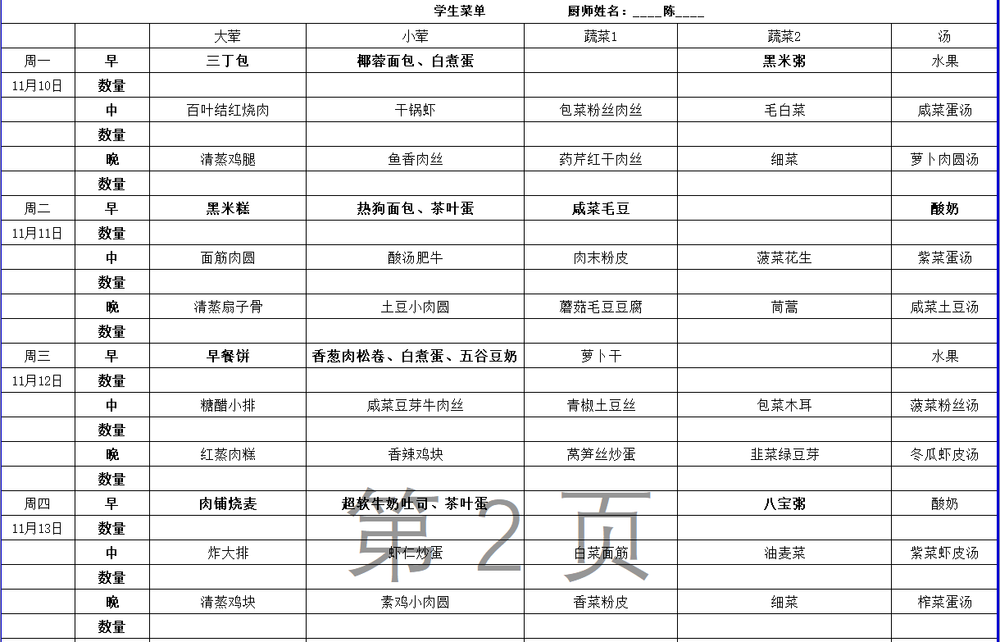 学生菜单 厨师姓名：____陈____
大荤 小荤 蔬菜1 蔬菜2 汤
周一 早 三丁包 椰蓉面包、白煮蛋 黑米粥 水果
11月10日 数量
中 百叶结红烧肉 干锅虾 包菜粉丝肉丝 毛白菜 咸菜蛋汤
数量
晚 清蒸鸡腿 鱼香肉丝 药芹红干肉丝 细菜 萝卜肉圆汤
数量
周二 早 黑米糕 热狗面包、茶叶蛋 咸菜毛豆 酸奶
11月11日 数量
中 面筋肉圆 酸汤肥牛 肉末粉皮 菠菜花生 紫菜蛋汤
数量
晚 清蒸扇子骨 土豆小肉圆 蘑菇毛豆豆腐 茼蒿 咸菜土豆汤
数量
周三 早 早餐饼 香葱肉松卷、白煮蛋、五谷豆奶 萝卜干 水果
11月12日 数量
中 糖醋小排 咸菜豆芽牛肉丝 青椒土豆丝 包菜木耳 菠菜粉丝汤
数量
晚 红蒸肉糕 香辣鸡块 莴笋丝炒蛋 韭菜绿豆芽 冬瓜虾皮汤
数量
周四 早 肉铺烧麦 超软牛奶吐司、茶叶蛋 八宝粥 酸奶
11月13日 数量
第 2 页
中 炸大排 虾仁炒蛋 白菜面筋 油麦菜 紫菜虾皮汤
数量
晚 清蒸鸡块 素鸡小肉圆 香菜粉皮 细菜 榨菜蛋汤
数量